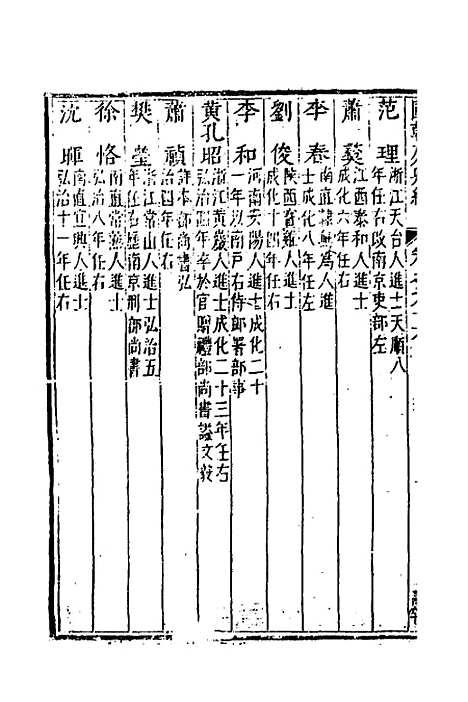 范理 浙江天台人進士天順八
年任右改南京吏部左
蕭 江西泰和人進士
成化六年任右
李春 南直隸 人進
士成化八年任左
劉俊 陝西寶雞人進士
成化十四年任右
李和 河南安陽人進士成化二十
一年以南戶右侍郎署部事
黃孔昭 浙江黃巖人進士成化二十三年任右
弘治四年卒於官贈禮部尚書諡文毅
蕭禎
治四年任右
樊瑩 浙江常山人進士弘治五
年任右歷南京刑部尚書
徐恪 南直常熟人進士
弘治八年任右
沈暉 南直宜興人進士
弘治十一年任右